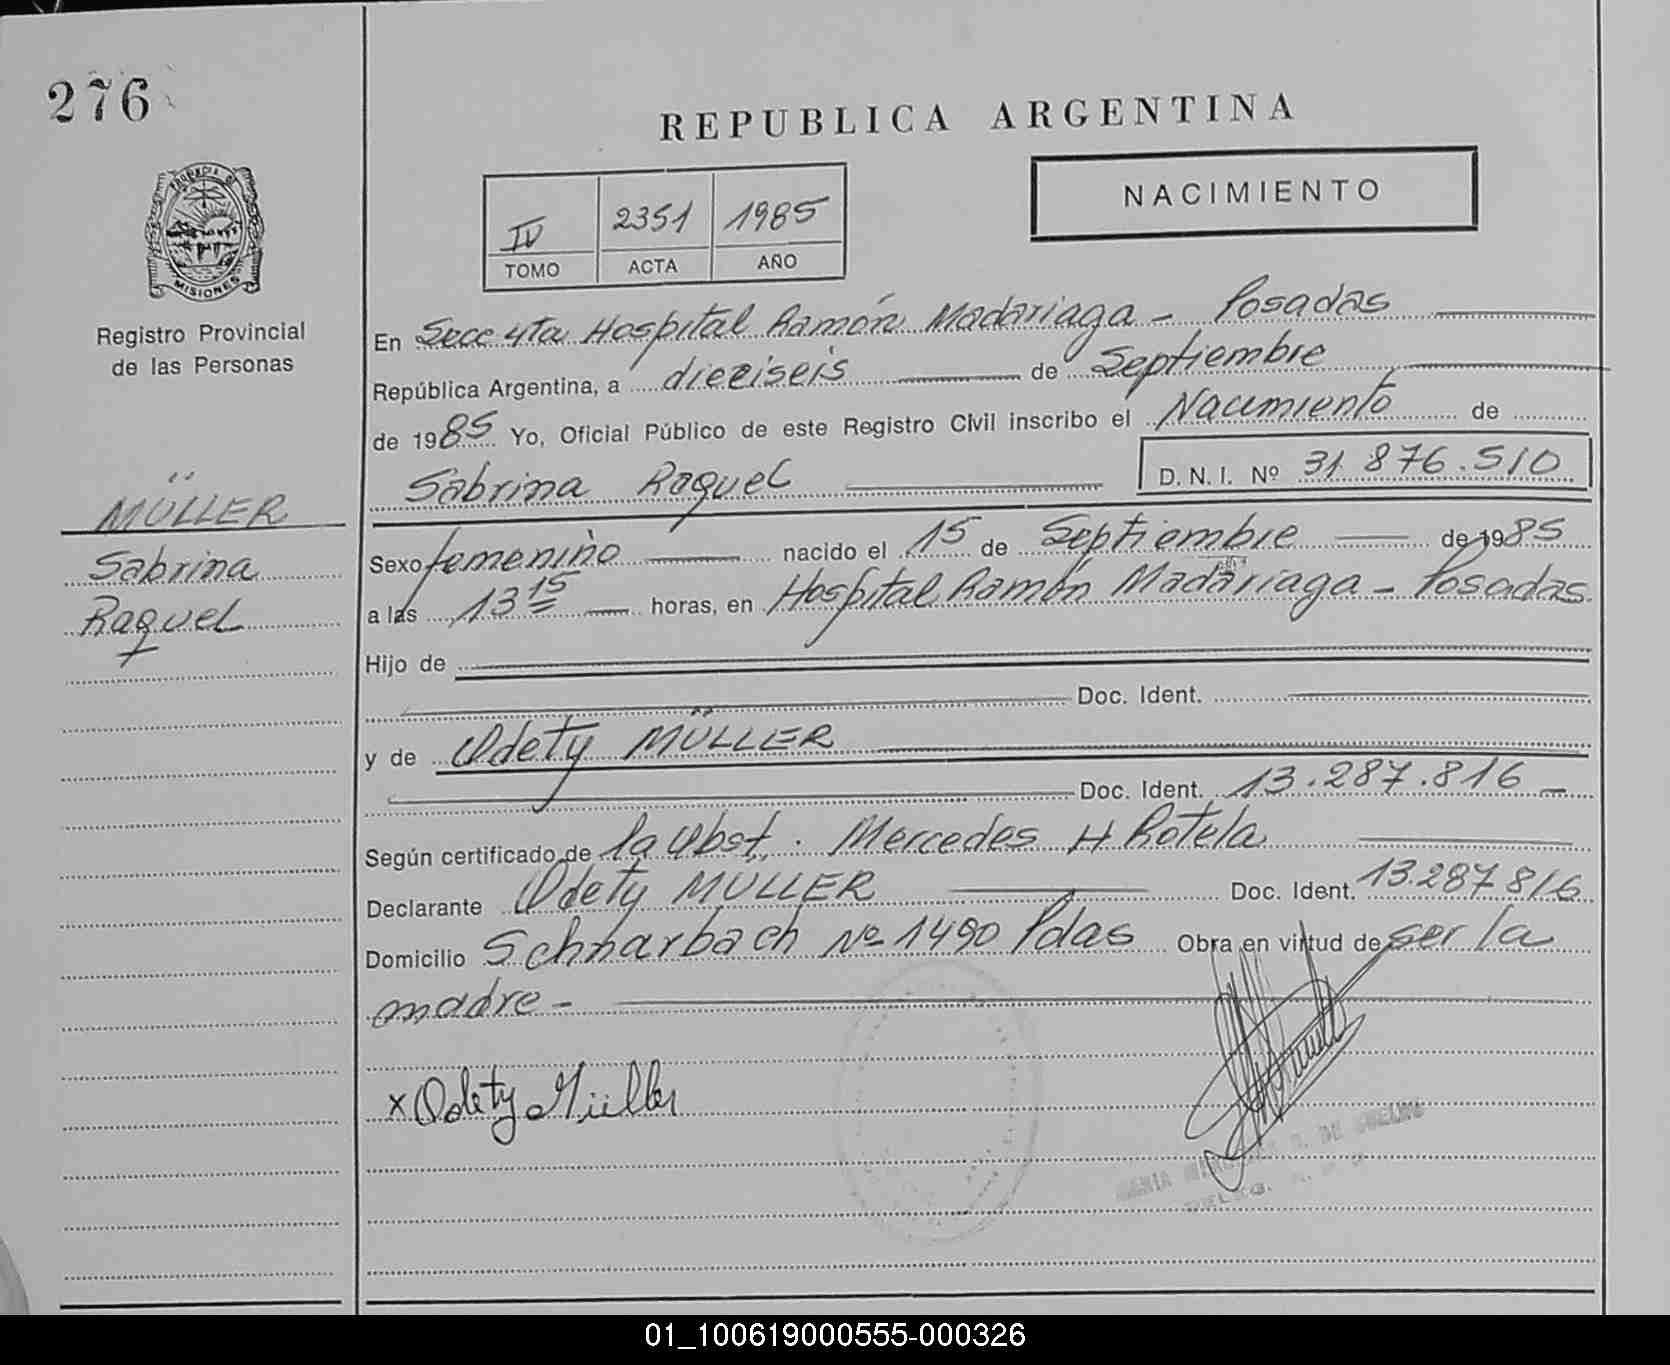 276
REPUBLICA ARGENTINA
PROVINCIA DE
MISIONES
Registro Provincial
de las Personas
IV 2351 1985
TOMO ACTA AÑO
NACIMIENTO
En Secc 4ta Hospital Ramón Madariaga - Posadas
República Argentina, a dieciseis de Septiembre
de 1985 Yo, Oficial Público de este Registro Civil inscribo el Nacimiento de
Sabrina Raquel D. N. I. Nº 31.876.510
MÜLLER
Sabrina
Raquel
Sexo femenino nacido el 15 de Septiembre de 1985
a las 13 15 horas, en Hospital Ramón Madariaga - Posadas
Hijo de
Doc. Ident.
y de Odety MÜLLER
Doc. Ident. 13.287.816 -
Según certificado de la Obst. Mercedes H Rotela
Declarante Odety MULLER Doc. Ident. 13.287816
Domicilio Schnarbach Nº 1490 Pdas Obra en virtud de ser la
madre -
x Odety Müller
01_100619000555-000326